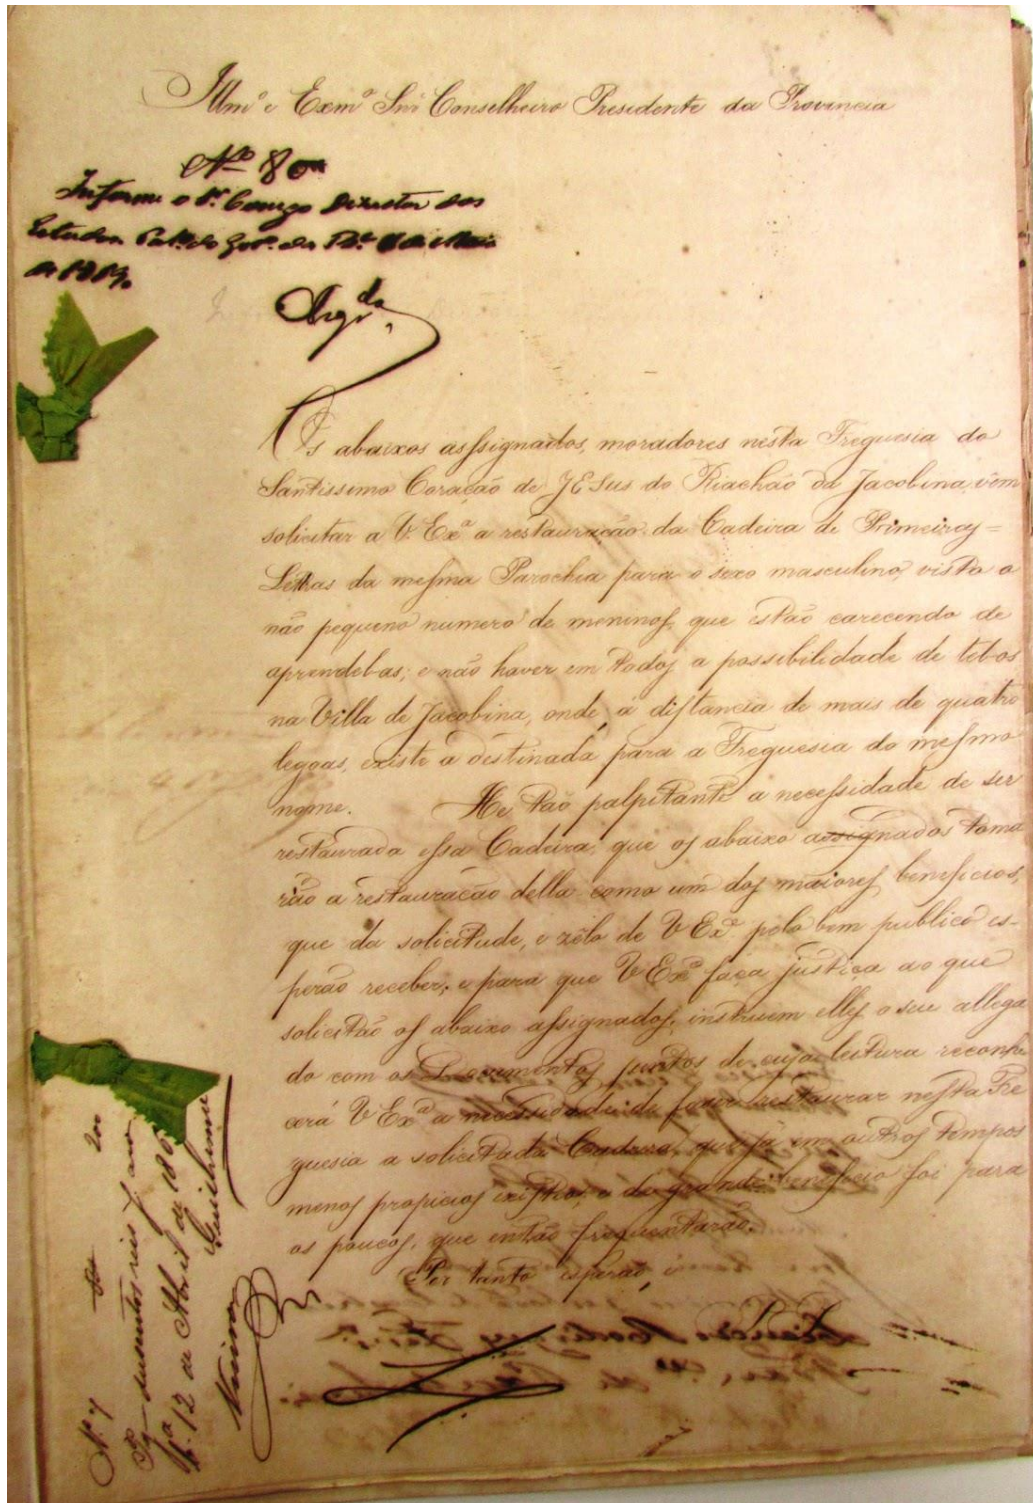 Illmº e Exmº Snr Conselheiro Presidente da Provincia
Nº 80
Informe o Sr. Conego Director dos
Estudos Palº do Govº da Bª de Maio
de
Os abaixos assignados, moradores nesta Freguesia do
Santissimo Coração de JESus do Riachão da Jacobina, vêm
solicitar a V. Exª a restauração da Cadeira de Primeiras=
Lettras da mesma Parochia para o sexo masculino, visto o
não pequeno numero de meninos, que estão carecendo de
aprendel-as; e não haver em todos a possibilidade de tel-os
na Villa de Jacobina, onde, á distancia de mais de quatro
legoas, existe a destinada para a Freguesia do mesmo
nome. He tão palpitante a necessidade de ser
restaurada essa Cadeira, que os abaixo assignados toma
rão a restauracão della como um dos maiores beneficios,
que da solicitude, e zêlo de V Exª pelo bem publico es-
perão receber; e para que V Exª faça justiça ao que
solicitão os abaixo assignados, instruem elles o seu allega
do com os Documentos juntos de cuja leitura reconhe
cerá V Exª a necessidade de fazer restaurar nesta Fre
guesia a solicitada Cadeira, que já em outros tempos
menos propicios existio, e de grande beneficio foi para
os poucos, que então frequentarão.
Por tanto esperão
Nº 7 200
Pg duzentos reis
12 de Abril de 186
Guilherme